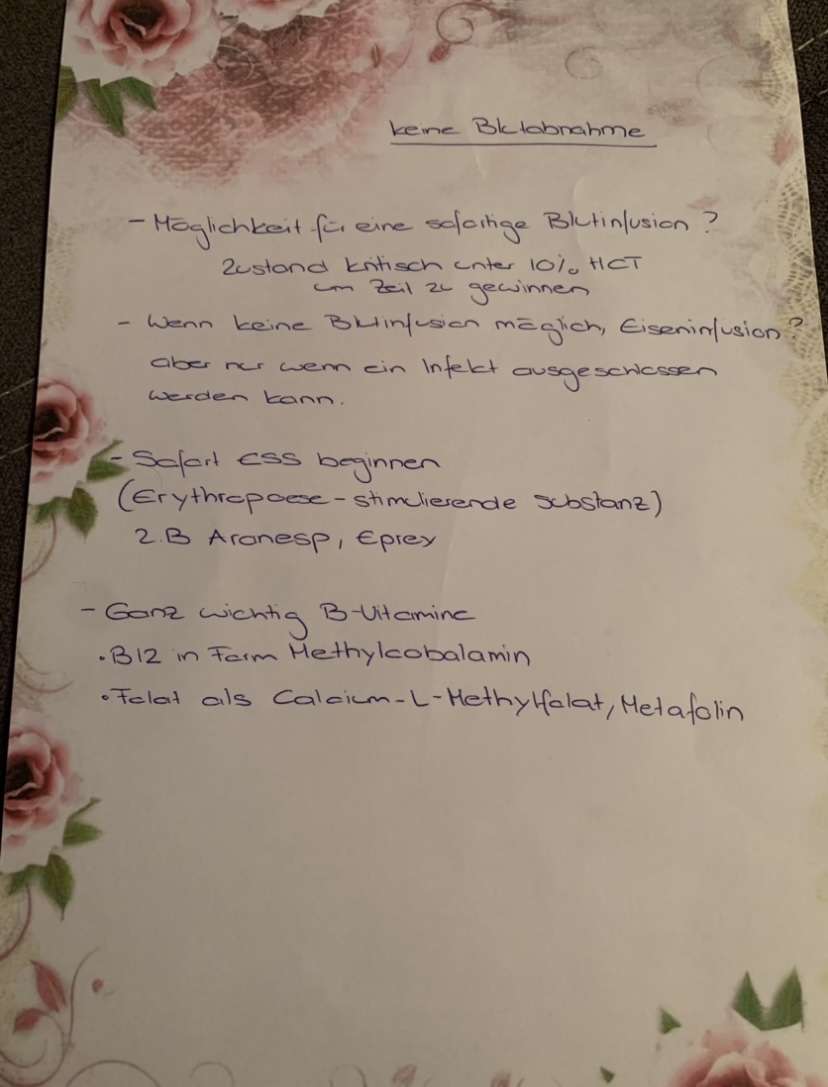 keine Blutabnahme
- Möglichkeit für eine sofortige Blutinfusion?
Zustand kritisch unter 10% HCT
um Zeit zu gewinnen
- Wenn keine Blutinfusion möglich, Eiseninfusion?
aber nur wenn ein Infekt ausgeschlossen
werden kann.
- Sofort ESS beginnen
(Erythropoese-stimulierende Substanz)
z.B Aranesp, Eprex
- Ganz wichtig B-Vitamine
• B12 in Form Methylcobalamin
• Folat als Calcium-L-Methylfolat, Metafolin